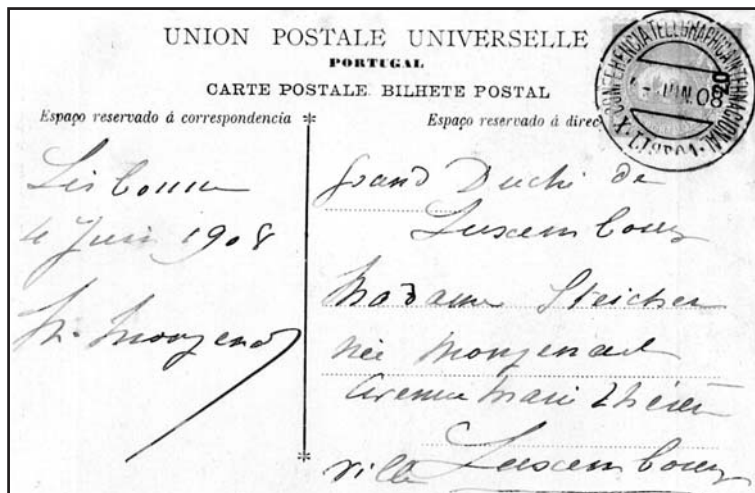 UNION POSTALE UNIVERSELLE
PORTUGAL
CARTE POSTALE. BILHETE POSTAL
Espaço reservado á correspondencia
Espaço reservado á direc
X. CONFERENCIA TELEGRAPHICA INTERNACIONAL
JUN. 08
LISBOA
20
Lisbonne
4 Juin 1908
Grand Duché de
Luxembourg
Madame Steichen
née Mongenast
Avenue Marie Thérèse
Ville Luxembourg